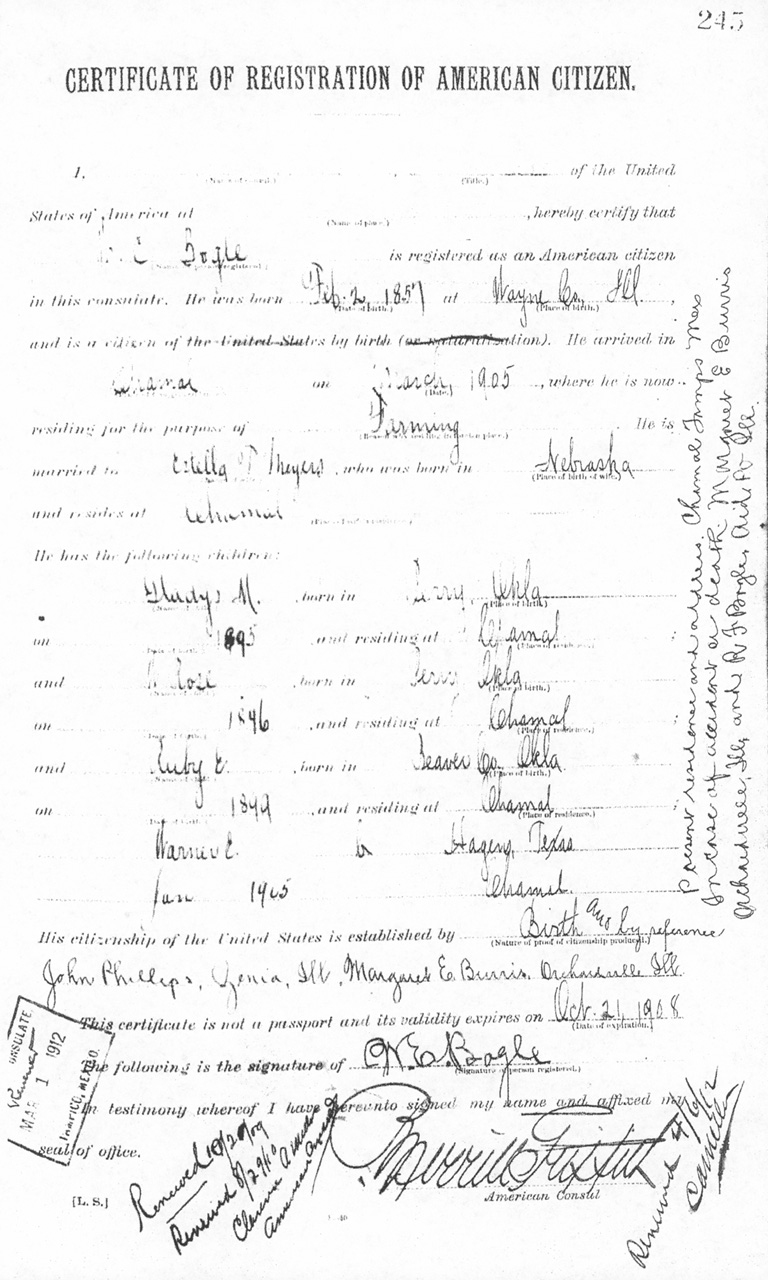 245
CERTIFICATE OF REGISTRATION OF AMERICAN CITIZEN.
I, of the United
(Title.)
States of America at , hereby certify that
(Name of place.)
E Bogle is registered as an American citizen
in this consulate. He was born Feb. 2, 1857 at Wayne Co., Ill. ,
(Date of birth.) (Place of birth.)
and is a citizen of the United States by birth (or naturalization). He arrived in
Chamal on March, 1905 , where he is now
(Date.)
residing for the purpose of Farming He is
married to Estella Meyers , who was born in Nebraska
(Place of birth of wife.)
and resides at Chamal
He has the following children:
Gladys M. , born in Perry, Okla
(Place of birth.)
on 1895 , and residing at Chamal ;
(Place of residence.)
and Rose , born in Perry Okla
(Place of birth.)
on 1896 , and residing at Chamal ;
(Place of residence.)
and Ruby E. , born in Beaver Co. Okla
(Place of birth.)
on 1899 , and residing at Chamal ;
(Place of residence.)
Warner E. b Texas
Jan 1905 Chamal.
His citizenship of the United States is established by Birth and by reference
(Nature of proof of citizenship produced.)
John Phillips, Xenia, Ill, Margaret E. Burris. Orchardville Ill.
This certificate is not a passport and its validity expires on Oct. 21, 1908
(Date of expiration.)
The following is the signature of W. E. Bogle
(Signature of person registered.)
In testimony whereof I have hereunto signed my name and affixed my
seal of office.
American Consul
[L. S.]
Present residence and address, Chamal Tamps Mex
In case of accident or death Margaret E Burris
Orchardville, Ill, and R F Bogle, Ill.
CONSULATE
MAR 1 1912
TAMPICO, MEXICO.
Renewed 10/20/09
Renewed 8/29/10
Clarence
Renewed